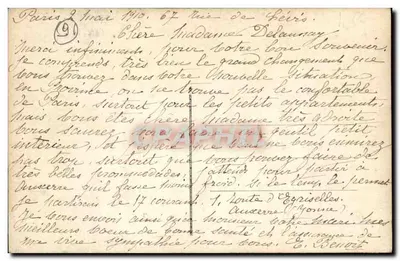 Paris 2 mai 1910. 67 rue de Lévis.
(9)
Chère Madame Delaunay
Merci infiniment, pour votre bon souvenir
je comprends très bien le grand changement que
vous trouvez dans votre nouvelle situation
en Yonne on ne trouve pas le confortable
de Paris, surtout pour les petits appartements,
mais vous êtes chère Madame très adroite
vous saurez gentil petit
intérieur, et vous ennuierez
pas trop, surtout que vous pouvez faire de
très belles promenades, j'attends pour partir à
Auxerre qu'il fasse moins froid. Si le temps le permet
je partirais le 17 courant. 5, route d'Egriselles
Auxerre (Yonne)
Je vous envoie ainsi qu'à monsieur votre mari mes
meilleurs vœux de bonne santé et l'assurance de
ma vive sympathie pour vous. E. Benoit